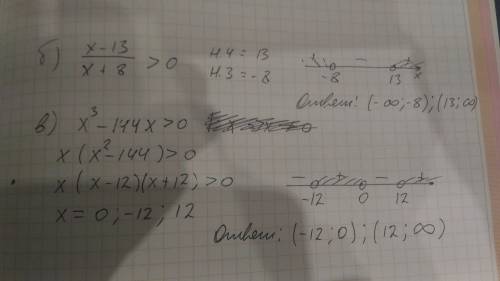 б) x-13/x+8 > 0 н.ч = 13
н.з = -8
+ - +
-8 13 x
Ответ: (-∞;-8);(13;∞)
в) x³-144x>0
x(x²-144)>0
x(x-12)(x+12)>0
- + - +
-12 0 12
x = 0; -12; 12
Ответ: (-12;0);(12;∞)